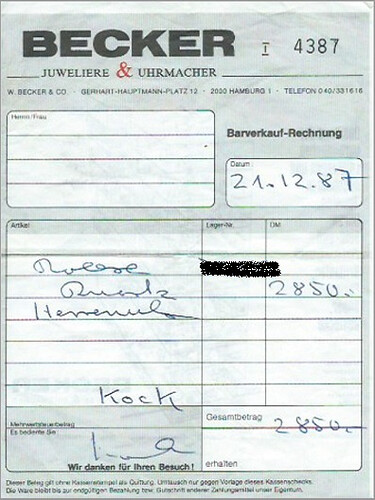 BECKER
I 4387
JUWELIERE & UHRMACHER
W. BECKER & CO. · GERHART-HAUPTMANN-PLATZ 12 · 2000 HAMBURG 1 · TELEFON 040/331616
Herrn/Frau
Barverkauf-Rechnung
Datum:
21.12.87
Artikel
Lager-Nr.
DM
Rolex
Quartz
2850.-
Herrenuhr
Kock
Mehrwertsteuerbetrag
Gesamtbetrag
2850.-
Es bediente Sie:
Wir danken für Ihren Besuch!
erhalten
Dieser Beleg gilt ohne Kassenstempel als Quittung. Umtausch nur gegen Vorlage dieses Kassenschecks.
Die Ware bleibt bis zur endgültigen Bezahlung bzw. Gutschrift anderer Zahlungsmittel unser Eigentum.